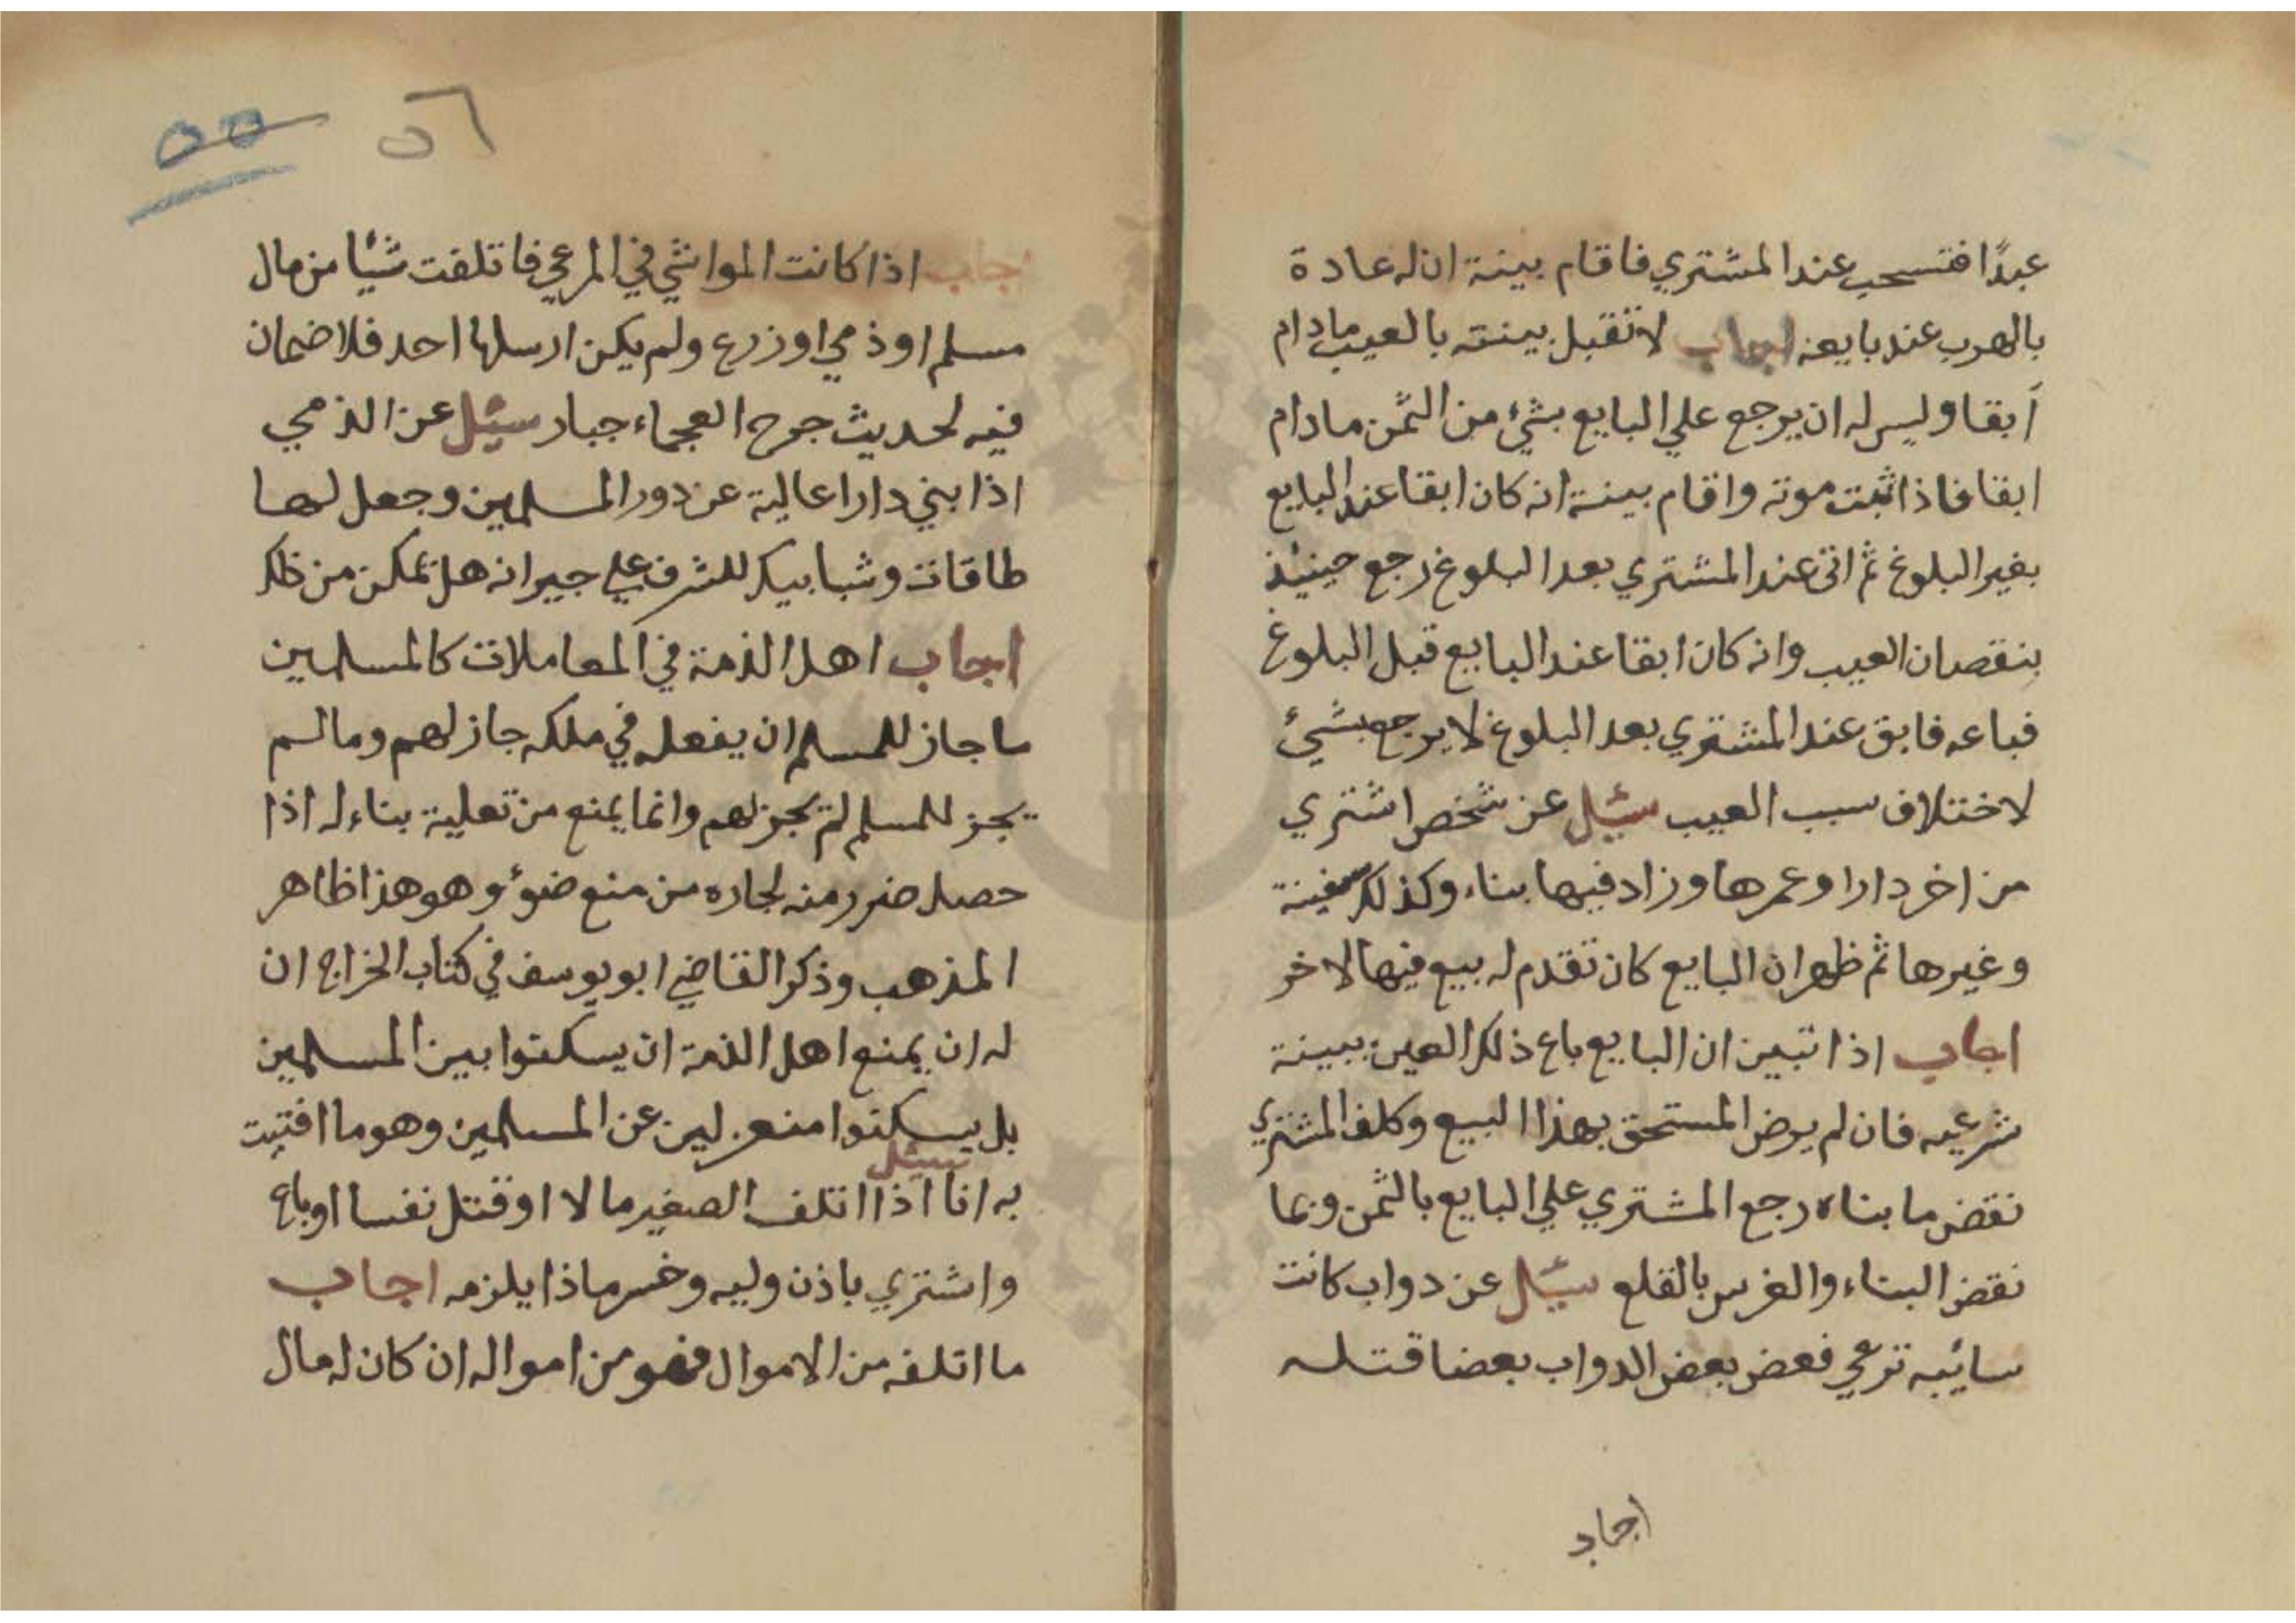 عبدًا فتسحب عند المشتري فاقام بينة ان له عادة
بالهرب عند بايعه اجاب لا تقبل بينته بالعيب مادام
آبقا وليس له ان يرجع علي البايع بشيء من الثمن مادام
ابقا فاذا ثبت موته واقام بينة انه كان ابقا عند البايع
بغير البلوغ ثم اتى عند المشتري بعد البلوغ رجع حينئذ
بنقصان العيب وانه كان ابقا عند البايع قبل البلوغ
فباعه فابق عند المشتري بعد البلوغ لا يرجع بشيئ
لاختلاف سبب العيب سئل عن شخص اشتري
من اخر دارا وعمرها وزاد فيها بناء وكذلك سفينة
وغيرها ثم ظهر ان البايع كان تقدم له بيع فيها لاخر
اجاب اذا تبين ان البايع باع ذلك العين ببينة
شرعيه فان لم يرض المستحق بهذا البيع وكلف المشتري
نقض ما بناه رجع المشتري علي البايع بالثمن وبما
نقض البناء والغرس بالقلع سئل عن دواب كانت
سائبه ترعي فعض بعض الدواب بعضا قتله
اجاب
٥٥ ٥٦
اجاب اذا كانت المواشي في المرعي فاتلفت شيًا من مال
مسلم او ذمي او زرع ولم يكن ارسلها احد فلا ضمان
فيه لحديث جرح العجماء جبار سئل عن الذمي
اذا بني دارا عالية عن دور المسلمين وجعل لها
طاقات وشبابيك للشرف علي جيرانه هل يمكن من ذلك
اجاب اهل الذمة في المعاملات كالمسلمين
ما جاز للمسلم ان يفعله في ملكه جاز لهم وما لم
يجز للمسلم لم يجز لهم وانما يمنع من تعلية بناءله اذا
حصل ضرر منه لجاره من منع ضوئ وهو هذا ظاهر
المذهب وذكر القاضي ابو يوسف في كتاب الخراج ان
له ان يمنع اهل الذمة ان يسكنوا بين المسلمين
بل يسكنوا منعزلين عن المسلمين وهو ما افتيت
به انا سئل اذا اتلف الصغير مالا او قتل نفسا او باع
واشتري باذن وليه وخسر ماذا يلزمه اجاب
ما اتلفه من الاموال فهو من امواله ان كان له مال